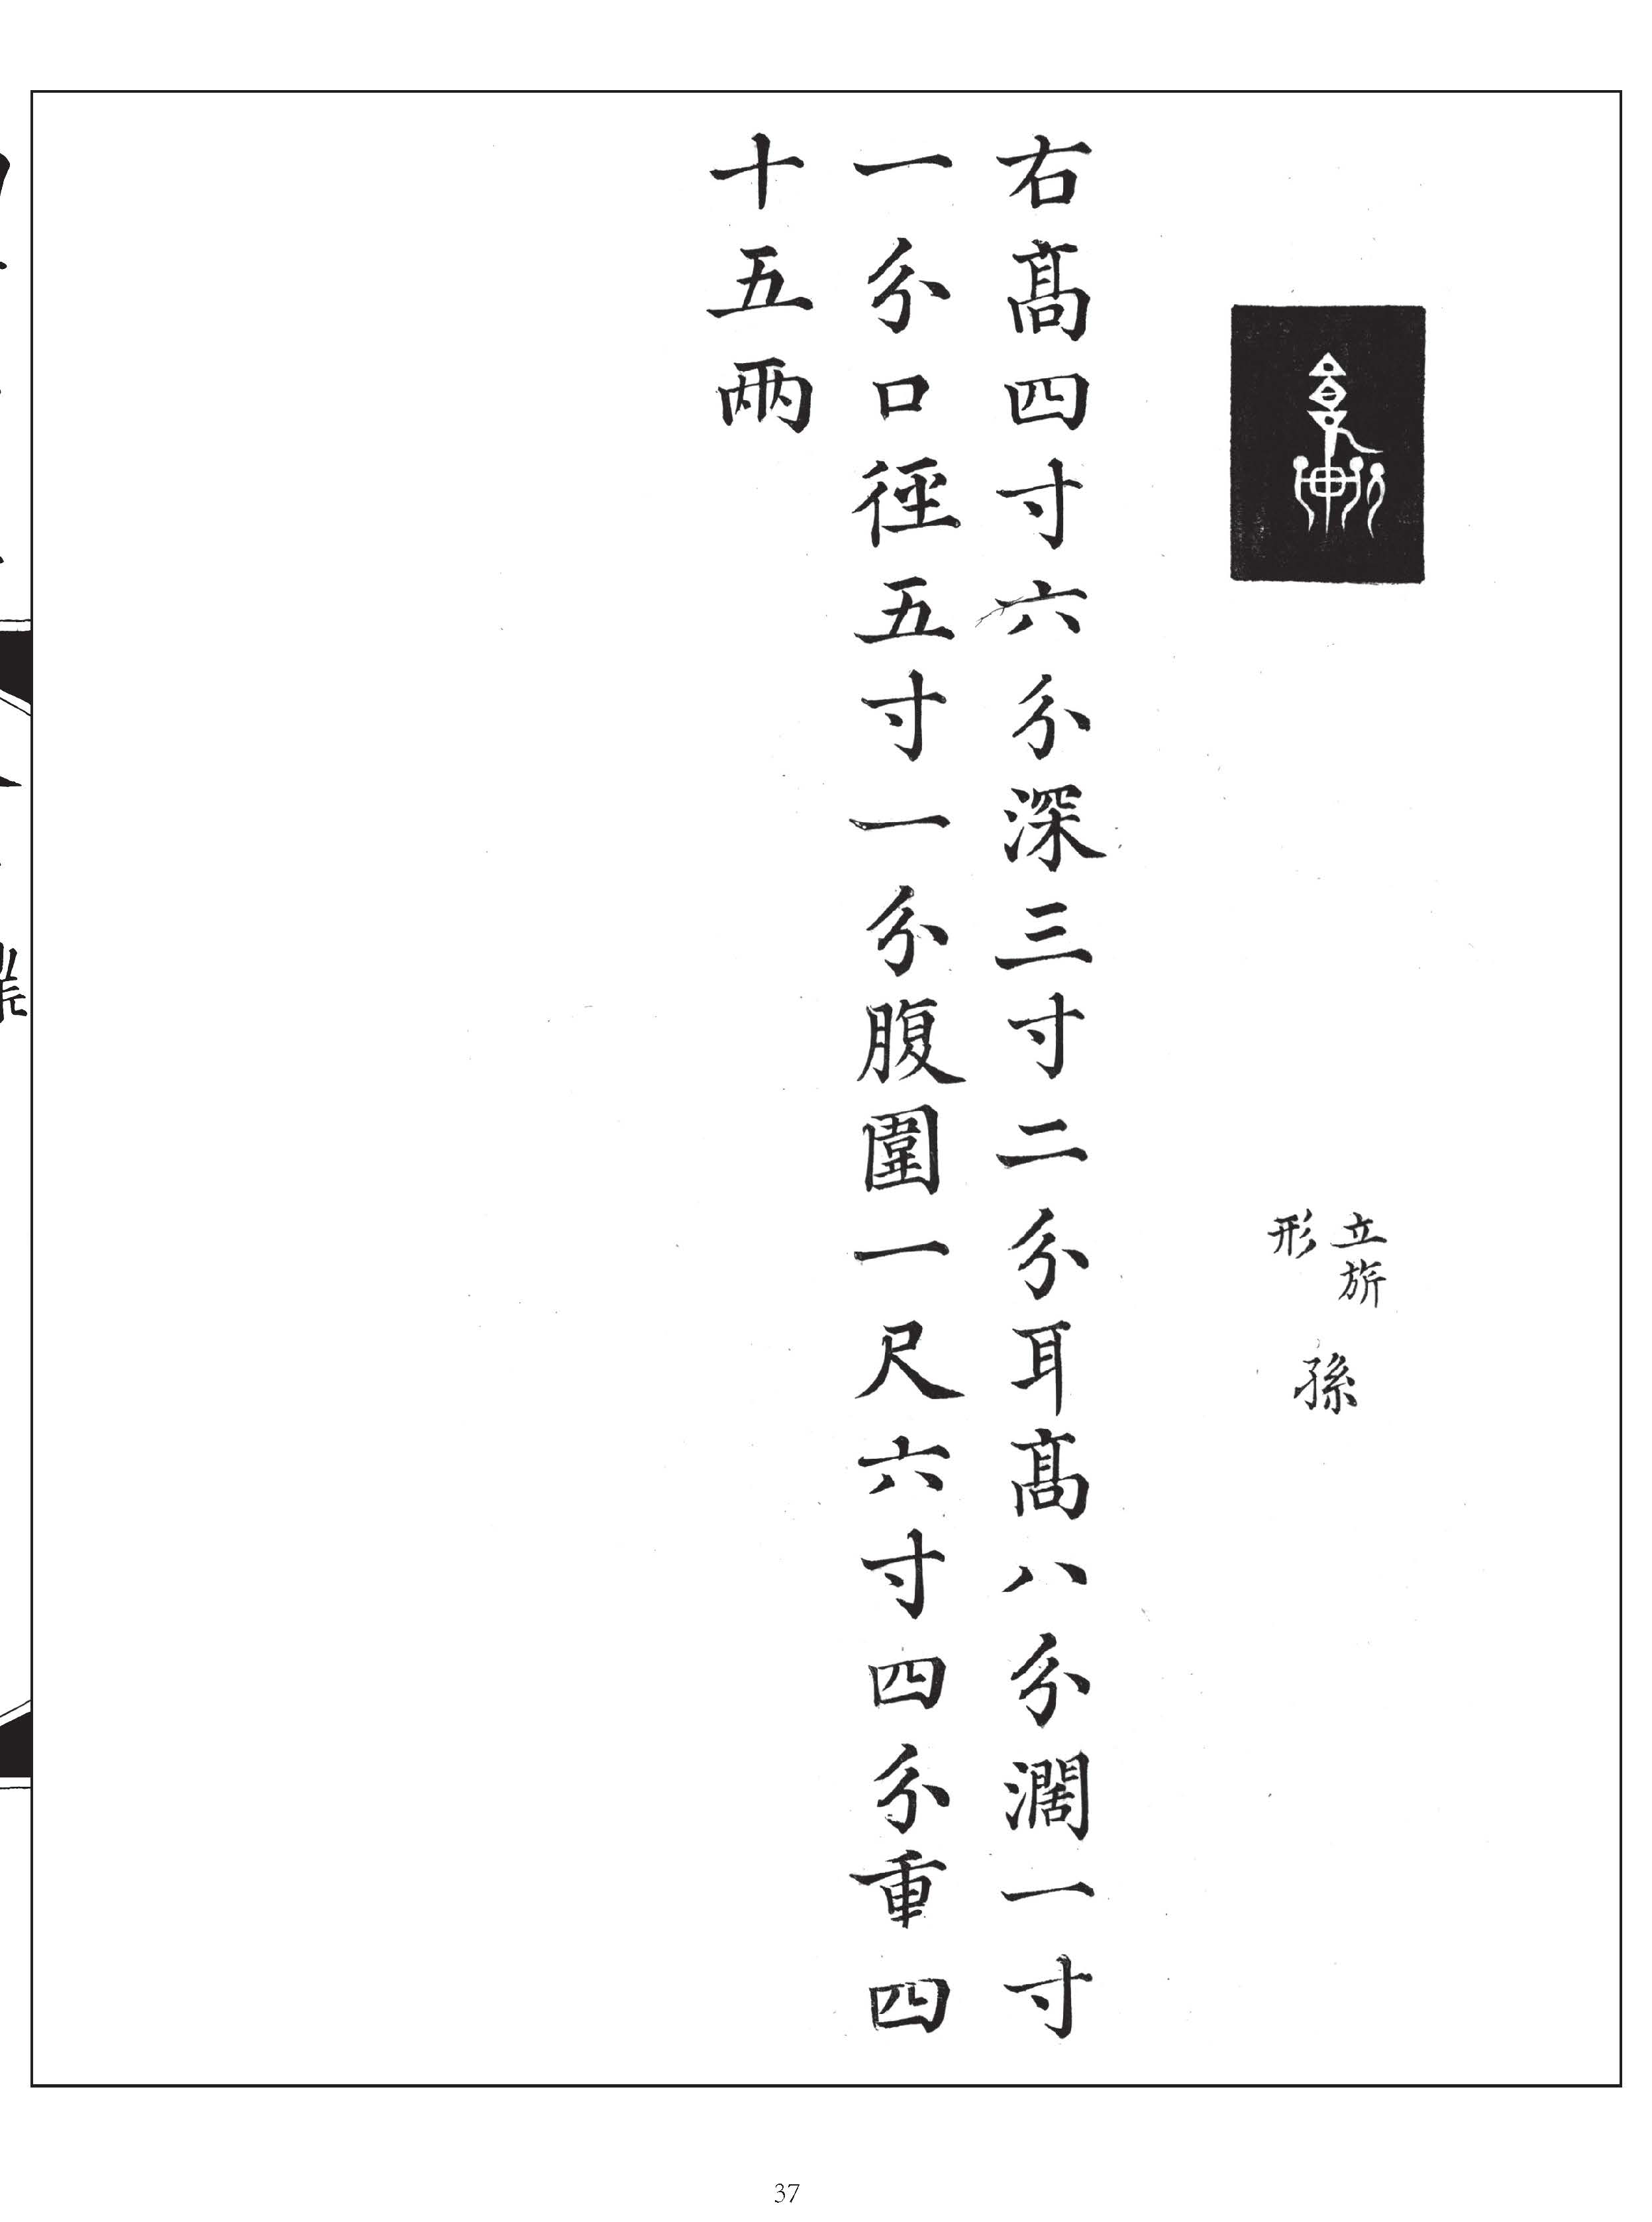 立旂
形
孫
右高四寸六分深三寸二分耳高八分濶一寸
一分口徑五寸一分腹圍一尺六寸四分重四
十五兩
37